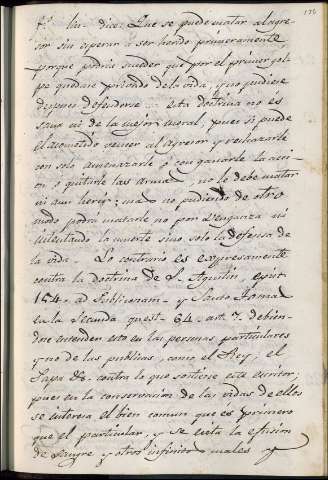 172
dice: Que se puede matar al agre-
sor sin esperar a ser herido primeramente,
porque podria suceder que por el primer gol-
pe quedase privado de la vida, y no pudiese
despues defenderse. Esta doctrina no es
sana ni de la mejor moral, pues si puede
el acometido vencer al agresor y rechazarle
con solo amenazarle ó con ganarle la acci-
on, ó quitarle las armas no le debe matar
ni aun herir; mas no pudiendo de otro
modo podrá matarle no por Venganza ni
intentando la muerte sino solo la defensa de
la vida. Lo contrario es expresamente
contra la doctrina de S. Agustin, epist.
154. ad Publicolam. y Santo Tomas
en la Secunda quest. 64. art. 7. debien-
dose entender esto en las personas particulares
y no de las publicas, como el Rey, el
Papa &c. contra lo que sostiene este escritor;
pues en la conservacion de las vidas de ellos
se interesa el bien comun que es primero
que el particular, y se evita la efusion
de Sangre y otros inferior males y